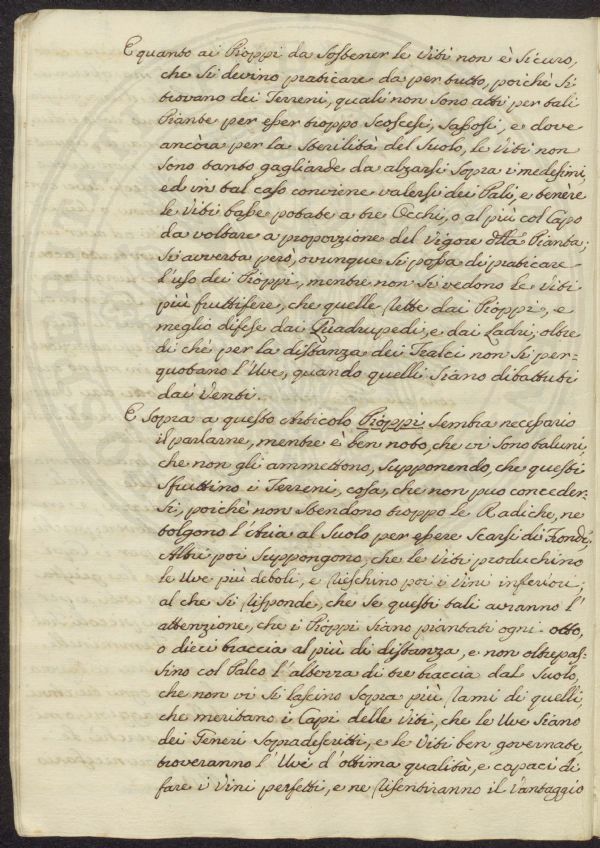 E quanto ai Pioppi da Sostener le Viti non è Sicuro,
che Si devino praticare da per tutto, poichè Si
trovano dei Terreni, quali non Sono atti per tali
Piante per esser troppo Scoscesi, Sassosi, e dove
ancòra per la Sterilità del Suolo, le Viti non
Sono tanto gagliarde da alzarsi Sopra i medesimi,
ed in tal caso conviene valersi dei Pali, e tenère
le Viti basse potate a tre Occhi, o al più col Capo
da voltare a proporzione del vigore della Pianta;
Si avverta però, ovunque Si possa di praticare
l'uso dei Pioppi, mentre non Si vedono le Viti
più fruttifere, che quelle rette dai Pioppi, e
meglio difese dai Quadrupedi, e dai Ladri, oltre
di chè per la distanza dei Tralci non Si per-
quotano l'Uve, quando quelli Siano dibattuti
dai Venti.
E Sopra a questo Articolo Pioppi Sembra necessario
il parlarne, mentre è ben noto, che vi Sono taluni,
che non gli ammettono, Supponendo, che questi
Sfruttino i Terreni, cosa, che non puo conceder-
Si, poichè non Stendono troppo le Radiche, ne
tolgono l'Aria al Suolo per essere Scarsi di Fronde,
Altri poi Suppongono, che le Viti produchino
le Uve più deboli, e rieschino poi i Vini inferiori;
al che Si risponde, che Se questi tali avranno l'
attenzione, che i Pioppi Siano piantati ogni otto,
o dieci braccia al più di distanza, e non oltrepas-
Sino col Palco l'altezza di tre braccia dal Suolo,
che non vi Si lascino Sopra più rami di quelli,
che meritano i Capi delle Viti, che le Uve Siano
dei Generi Sopradescritti, e le Viti ben governate,
troveranno l'Uve d'ottima qualità, e capaci di
fare i Vini perfetti, e ne risentiranno il Vantaggio